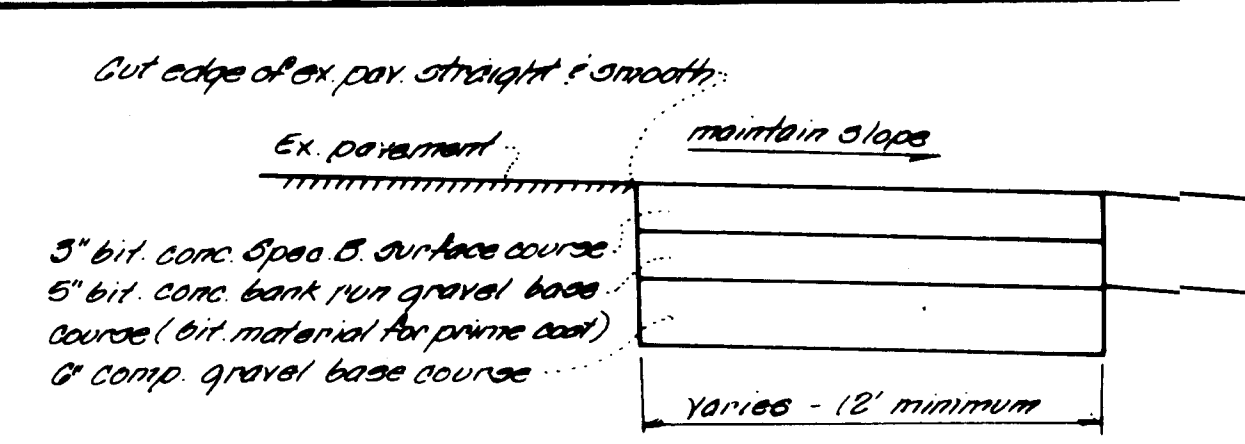 Cut edge of ex. pav. straight & smooth
Ex. pavement
maintain slope
3" bit. conc. Spec. B. surface course
5" bit. conc. bank run gravel base
course (bit. material for prime coat)
6" comp. gravel base course
Varies - 12' minimum